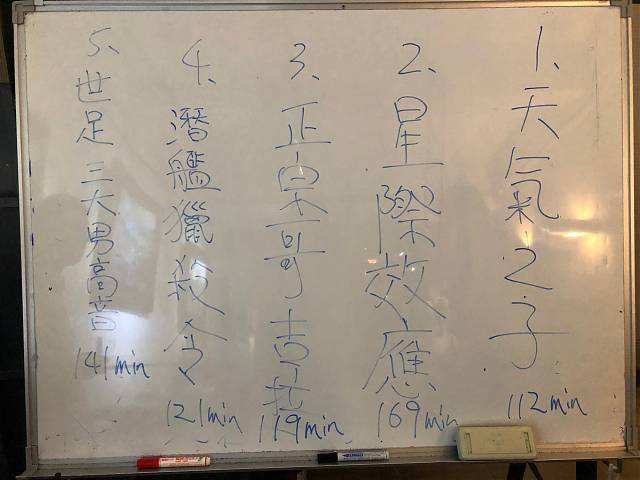 1、天氣之子 112min
2、星際效應 169min
3、正宗哥吉拉 119min
4、潛艦獵殺令 121min
5、世足三大男高音 141min